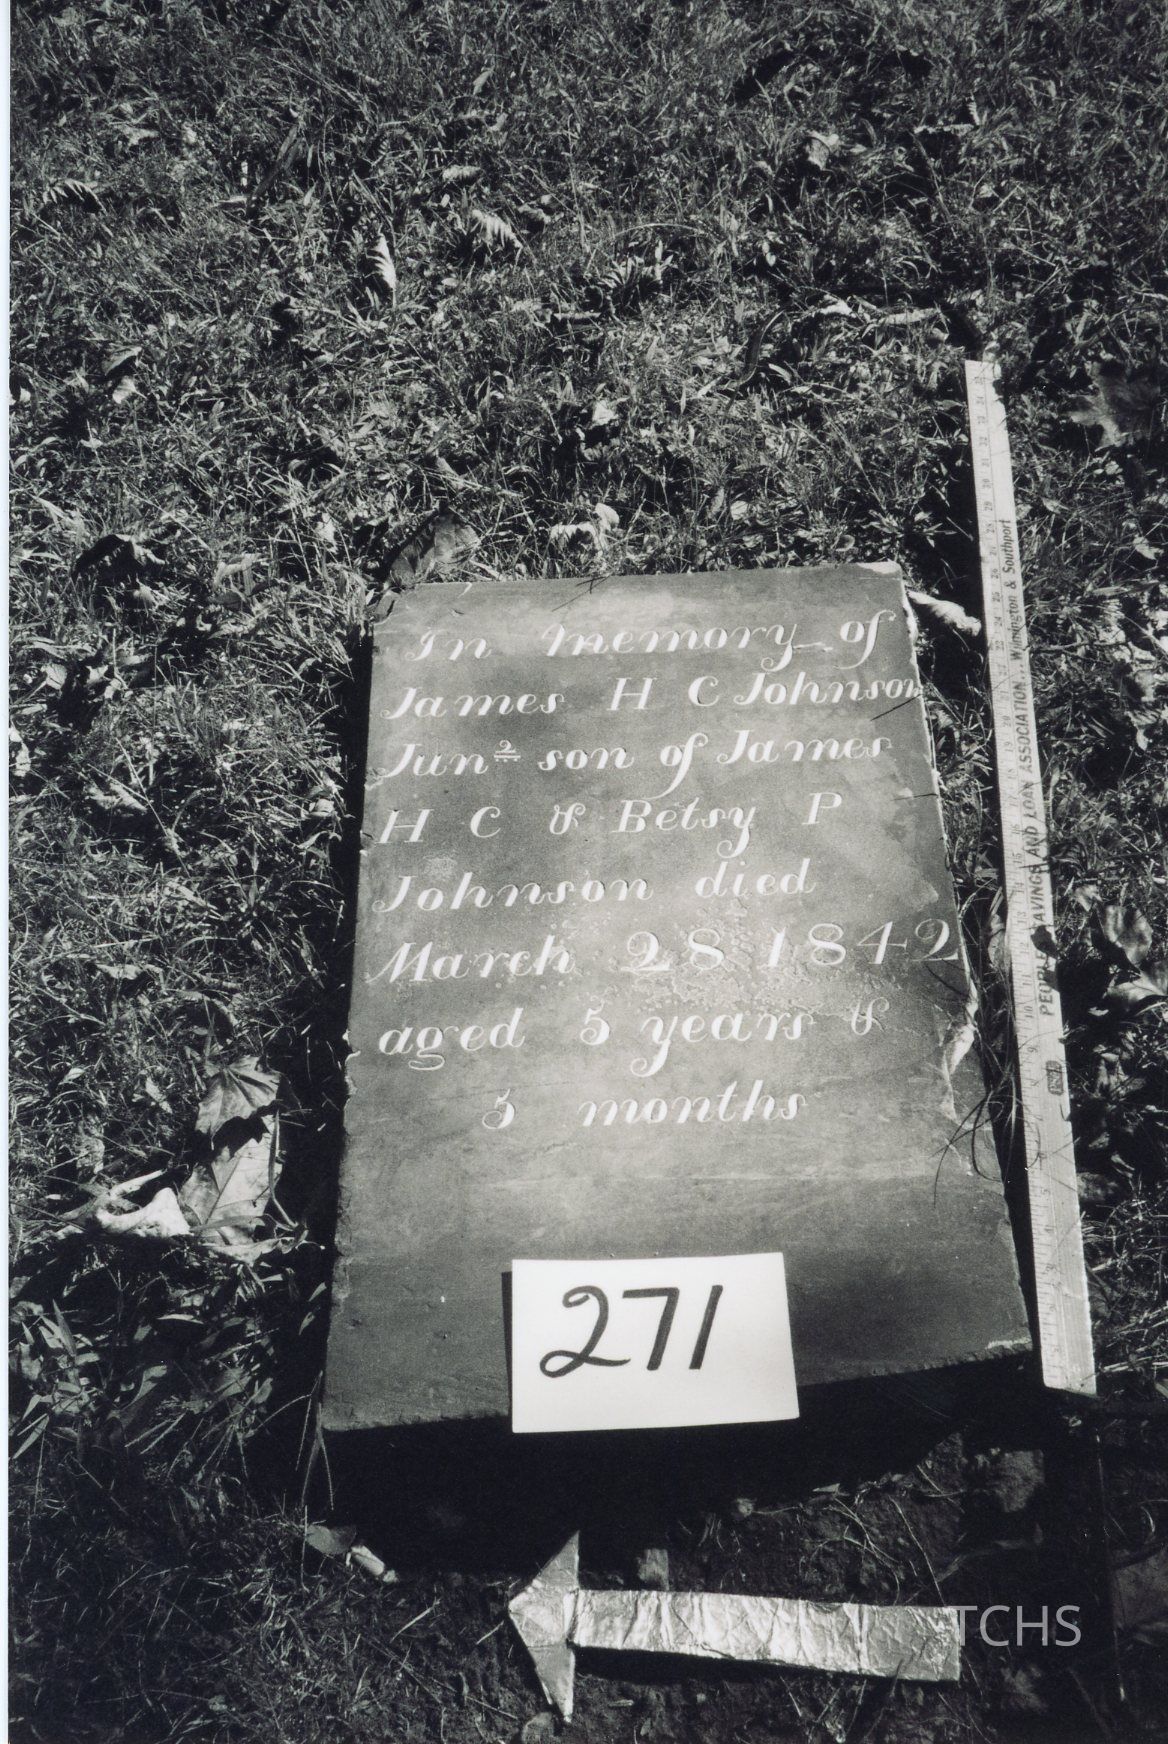 In memory of
James H C Johnson
Junr son of James
H C & Betsy P
Johnson died
March 28 1842
aged 5 years &
5 months
271
PEOPLES SAVINGS AND LOAN ASSOCIATION.. Wilmington & Southport
TCHS